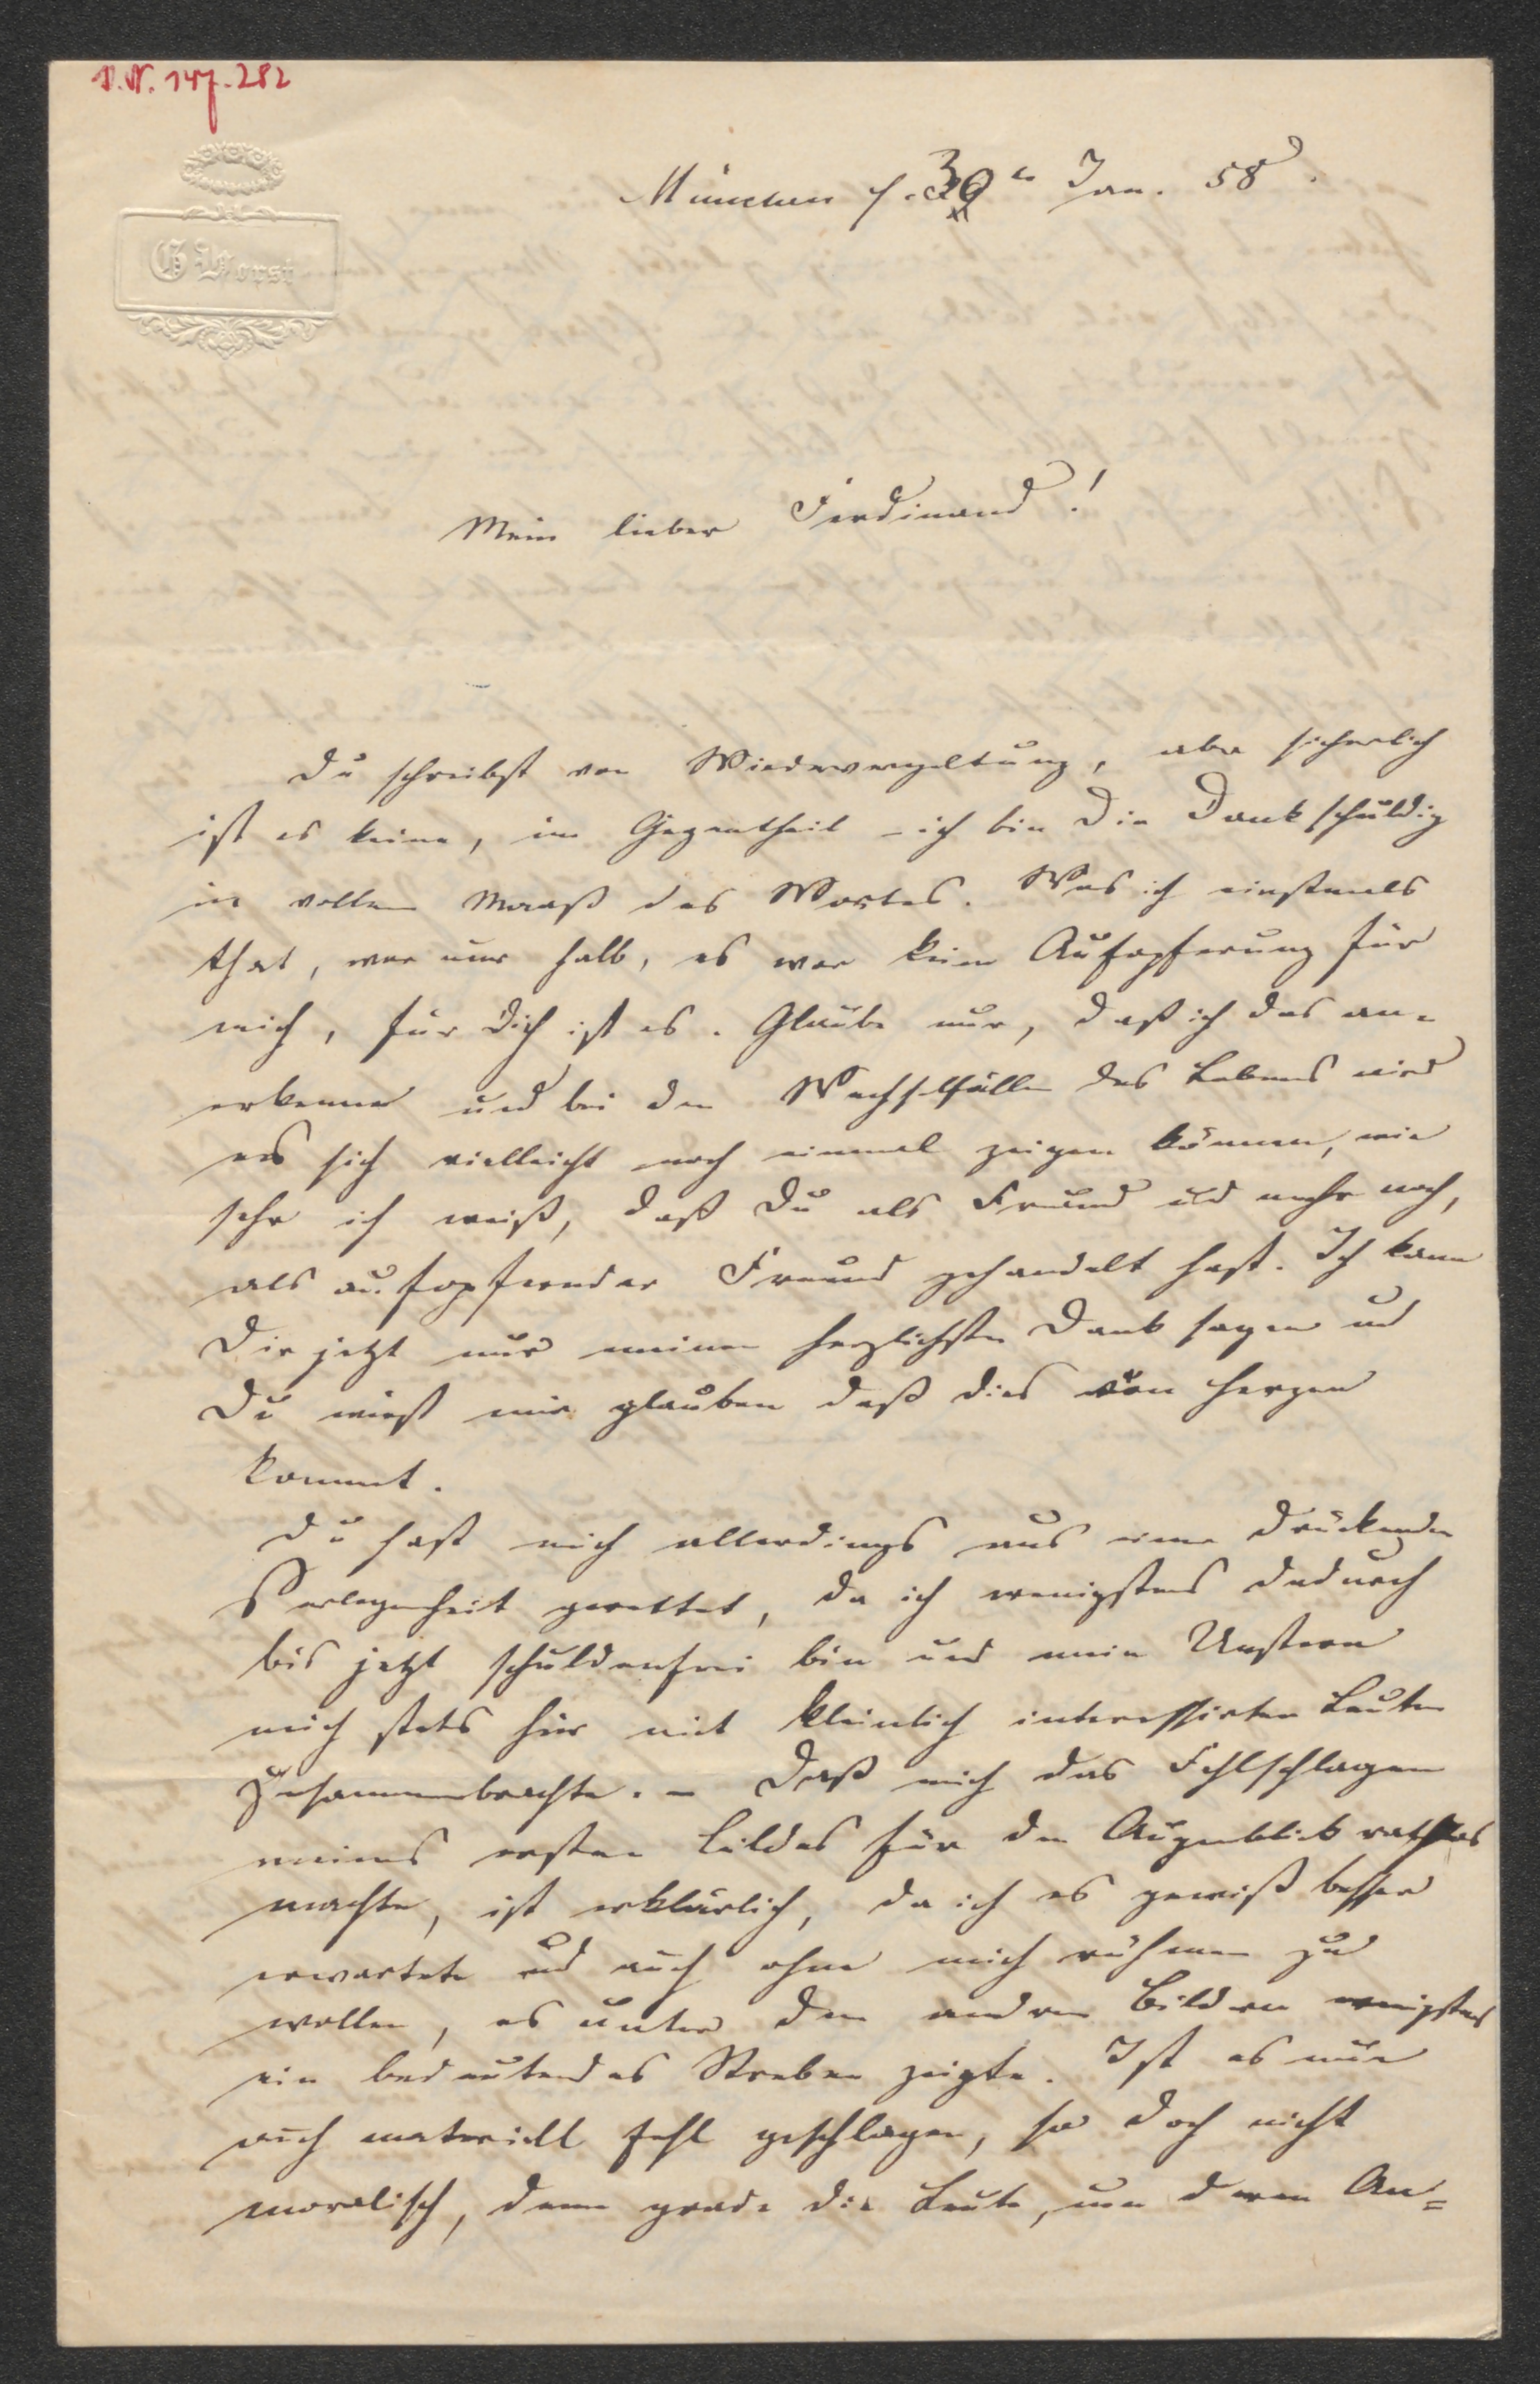 I.N. 147.282
München d. 30n Jan. 58.
Mein lieber Ferdinand!
Du schreibst von Wiedervergeltung, aber sicherlich
ist es keine, im Gegentheil – ich bin Dir Dank schuldig
im vollen Maaß des Wortes. Was ich einstmals
that, war nur halb, es war keine Aufopferung für
mich, für Dich ist es. Glaube nur, daß ich das an-
erkenne und bei den Wechselfällen des Lebens wird
es sich vielleicht noch einmal zeigen können, wie
sehr ich weiß, daß Du als Freund und mehr noch,
als aufopfernder Freund gehandelt hast. Ich kann
Dir jetzt nur meinen herzlichsten Dank sagen und
Du wirst mir glauben daß dies von Herzen
kommt.
Du hast mich allerdings aus einer drückenden
Verlegenheit gerettet, da ich wenigstens dadurch
bis jetzt schuldenfrei bin und mein Unstern
mich stets hier mit kleinlich interessirten Leuten
zusammenbrachte. – Daß mich das Fehlschlagen
meines ersten Bildes für den Augenblick rathlos
machte, ist erklärlich, da ich es gewiß besser
erwartete und auch ohne mich rühmen zu
wollen, es unter den andren Bildern wenigstens
ein bedeutendes Streben zeigte. Ist es nun
auch materiell fehl geschlagen, so doch nicht
moralisch, denn grade die Leute, um deren An-